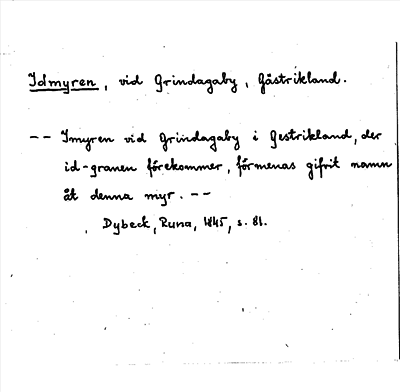 Idmyren, vid Grindagaby, Gästrikland.
-- Imyren vid Grindagaby i Gestrikland, der
id-granen förekommer, förmenas gifvit namn
åt denna myr. --
Dybeck, Runa, 1845, s. 81.